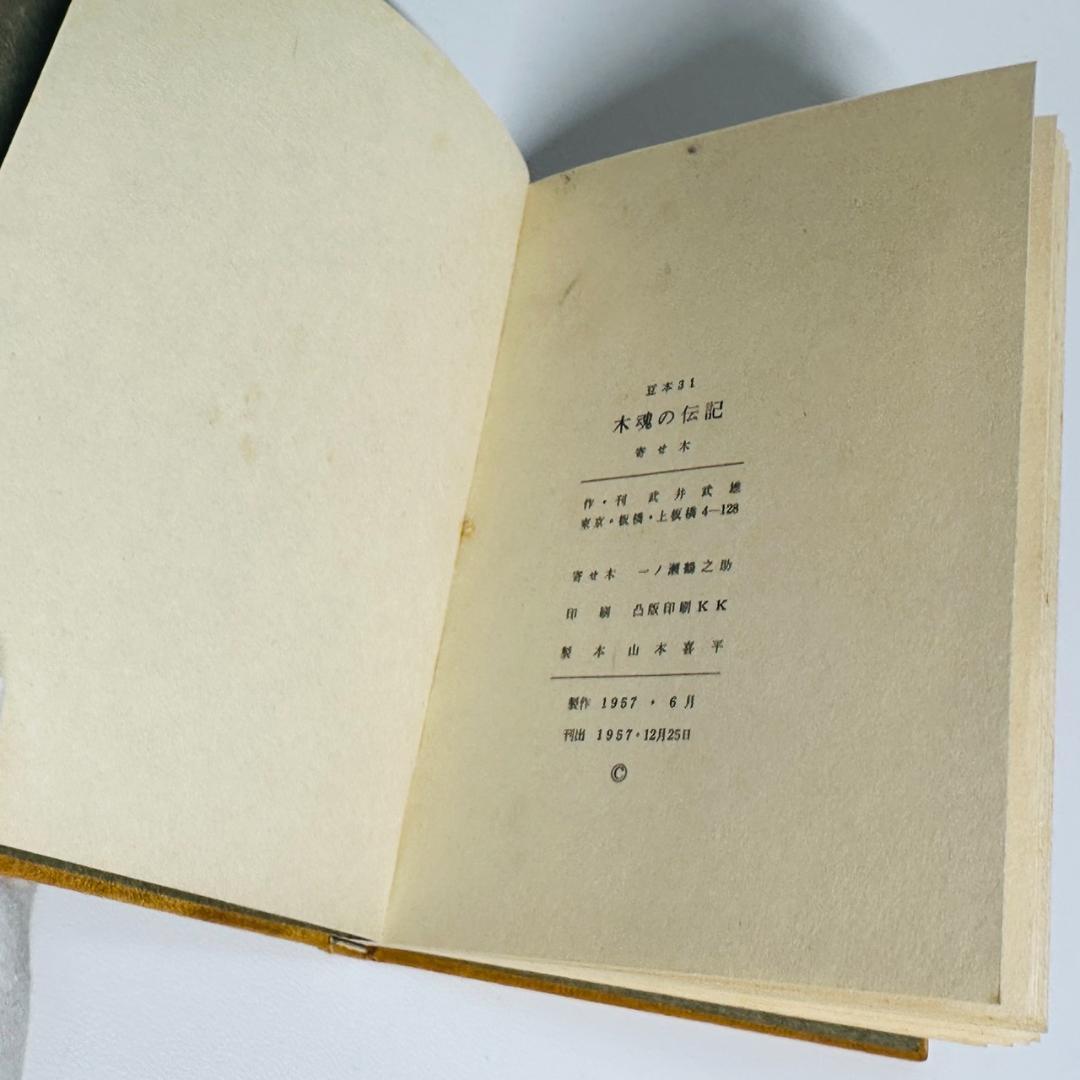 豆本31
木魂の伝記
寄せ木
作・刊 武井武雄
東京・板橋・上板橋4—128
寄せ木 一ノ瀬鶴之助
印刷 凸版印刷KK
製本 山本喜平
製作 1957・6月
刊出 1957・12月25日
©